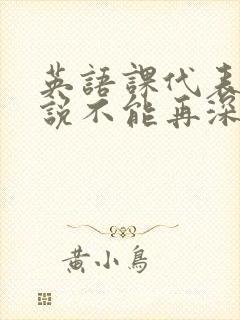 英語課代表
說不能再深
黃小鳥